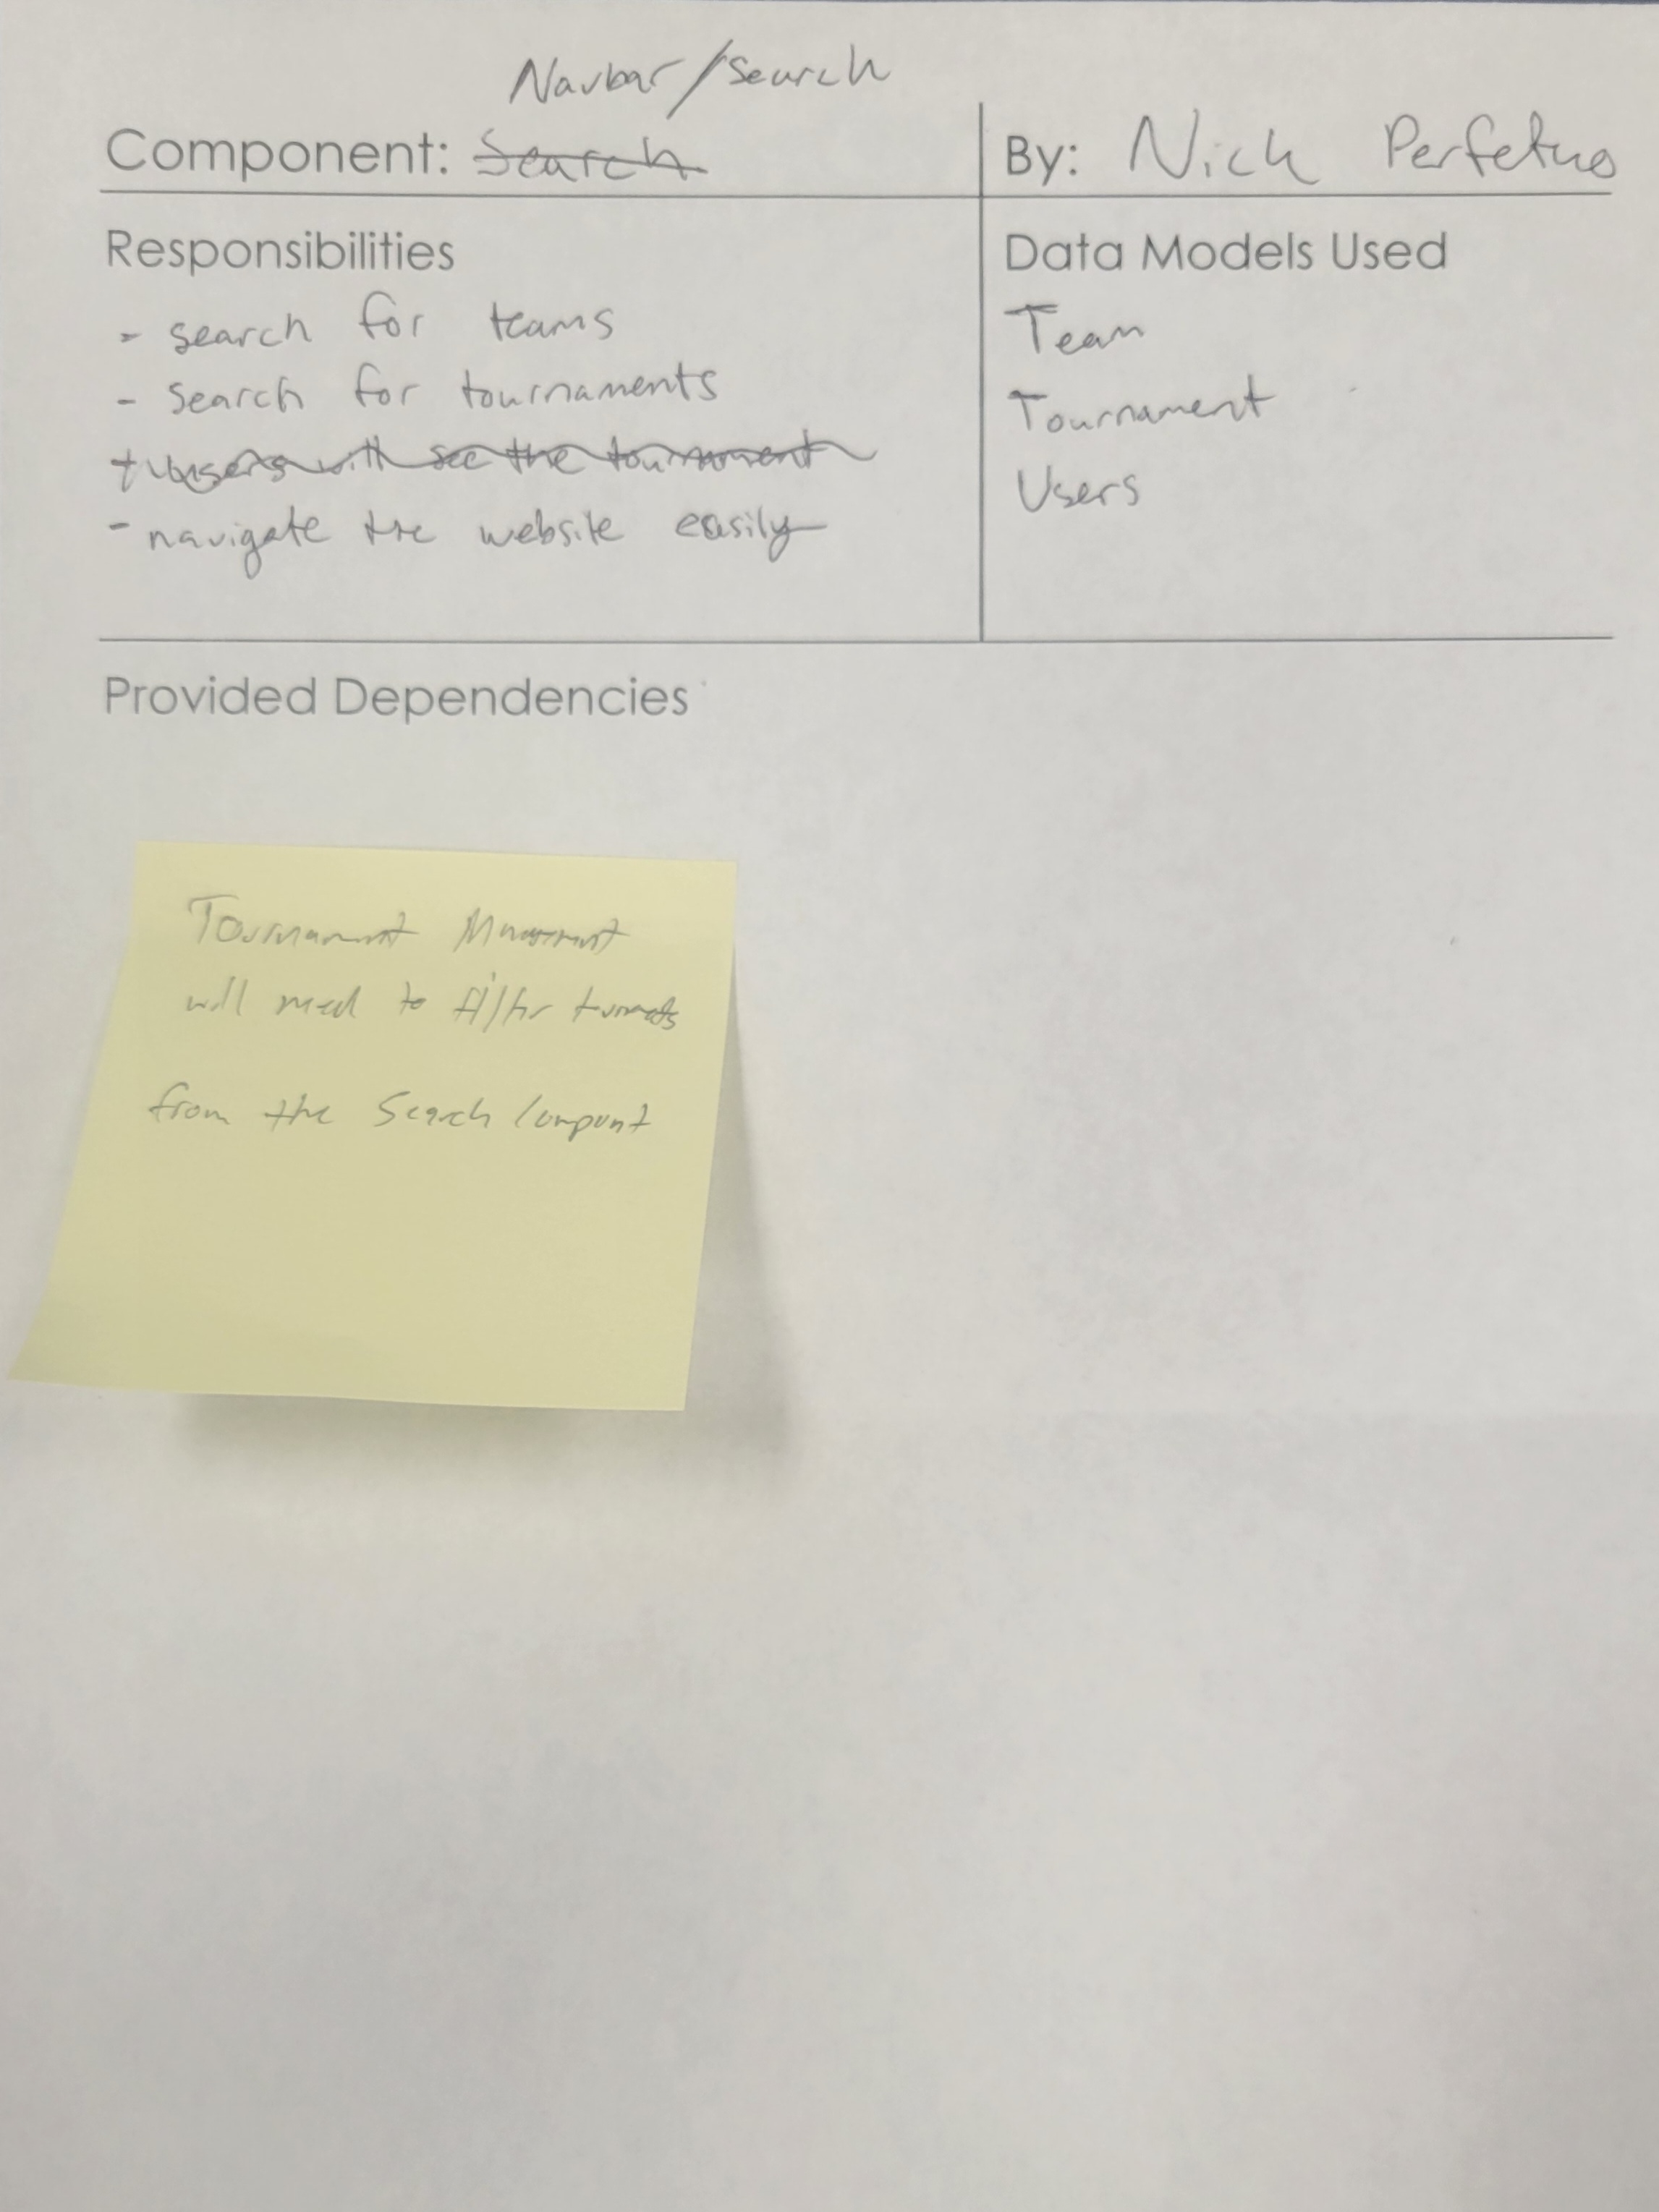 Navbar/Search
Component: Search
By: Nick Perfetuo
Responsibilities
- search for teams
- search for tournaments
users will see the tournament
- navigate the website easily
Data Models Used
Team
Tournament
Users
Provided Dependencies
Tournament Management
will need to filter
from the Search Component